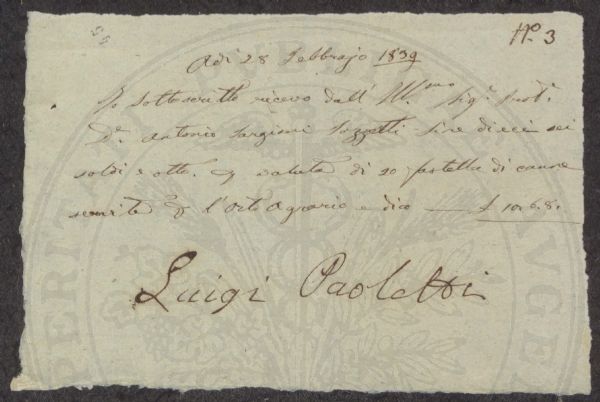 55
N.º 3
Adì 28 Febbrajo 1839
Io Sottoscritto ricevo dall' Ill.mo Sig.r Prof.r
D.r Antonio Targioni Tozzetti Lire dieci sei
soldi e otto. valuta di 20 fastella di canne
servite l'Orto Agrario e dico £ 10. 6. 8.
Luigi Paoletti